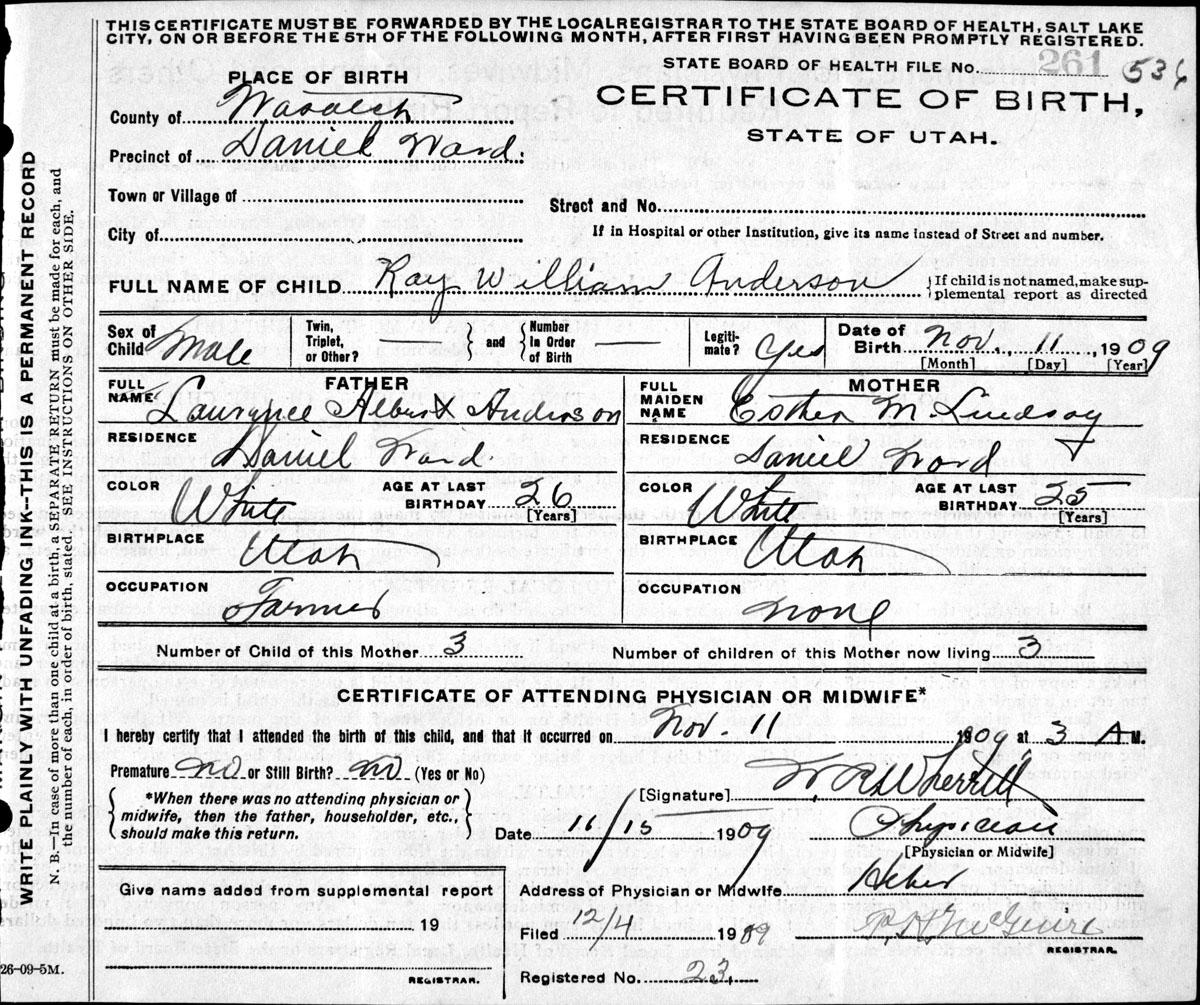 THIS CERTIFICATE MUST BE FORWARDED BY THE LOCAL REGISTRAR TO THE STATE BOARD OF HEALTH, SALT LAKE
CITY, ON OR BEFORE THE 5TH OF THE FOLLOWING MONTH, AFTER FIRST HAVING BEEN PROMPTLY REGISTERED.
STATE BOARD OF HEALTH FILE No. 261 536
PLACE OF BIRTH
CERTIFICATE OF BIRTH,
STATE OF UTAH.
County of Wasatch
Precinct of Daniel Ward
Town or Village of
Street and No.
City of
If in Hospital or other Institution, give its name instead of Street and number.
FULL NAME OF CHILD Ray William Anderson
If child is not named, make sup-
plemental report as directed
Sex of Child Male
Twin, Triplet, or Other? —
and
Number In Order of Birth —
Legiti-mate? Yes
Date of Birth Nov., 11, 1909
[Month] [Day] [Year]
FATHER
FULL NAME Lawrence Albert Anderson
RESIDENCE Daniel Ward.
COLOR White
AGE AT LAST BIRTHDAY 26 [Years]
BIRTHPLACE Utah
OCCUPATION Farmer
MOTHER
FULL MAIDEN NAME Esther M. Lindsay
RESIDENCE Daniel Ward
COLOR White
AGE AT LAST BIRTHDAY 25 [Years]
BIRTHPLACE Utah
OCCUPATION None
Number of Child of this Mother 3
Number of children of this Mother now living 3
CERTIFICATE OF ATTENDING PHYSICIAN OR MIDWIFE*
I hereby certify that I attended the birth of this child, and that it occurred on Nov. 11 1909 at 3 A M.
Premature no or Still Birth? no (Yes or No)
*When there was no attending physician or
midwife, then the father, householder, etc.,
should make this return.
[Signature] W. R. Wherritt
Date 11/15 1909 Physician
[Physician or Midwife]
Give name added from supplemental report
19
REGISTRAR.
Address of Physician or Midwife Heber
Filed 12/4 1909 McGuire
REGISTRAR.
Registered No. 23.
26-09-5M.
WRITE PLAINLY WITH UNFADING INK—THIS IS A PERMANENT RECORD
N. B.—In case of more than one child at a birth a SEPARATE RETURN must be made for each, and
the number of each, in order of birth, stated. SEE INSTRUCTIONS ON OTHER SIDE.